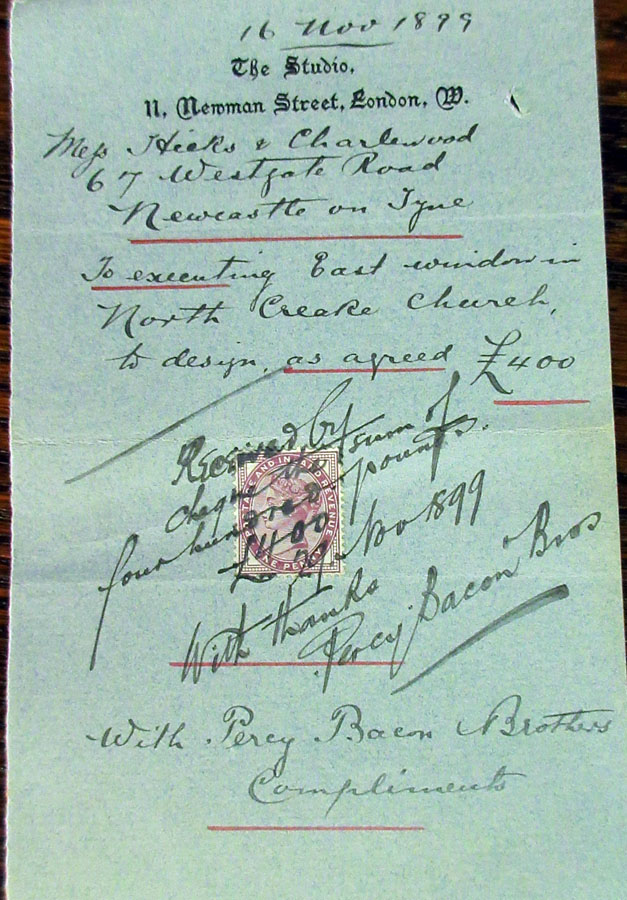 16 Nov 1899
The Studio,
11, Newman Street, London, W.
Mess Hicks & Charlewood
67 Westgate Road
Newcastle on Tyne
To executing East window in
North Creake Church,
to design, as agreed £400
Received by
cheque the sum of
four hundred pounds.
£400
Nov 1899
POSTAGE AND INLAND REVENUE
ONE PENNY
With thanks
Percy Bacon Bros
With Percy Bacon Brothers
Compliments